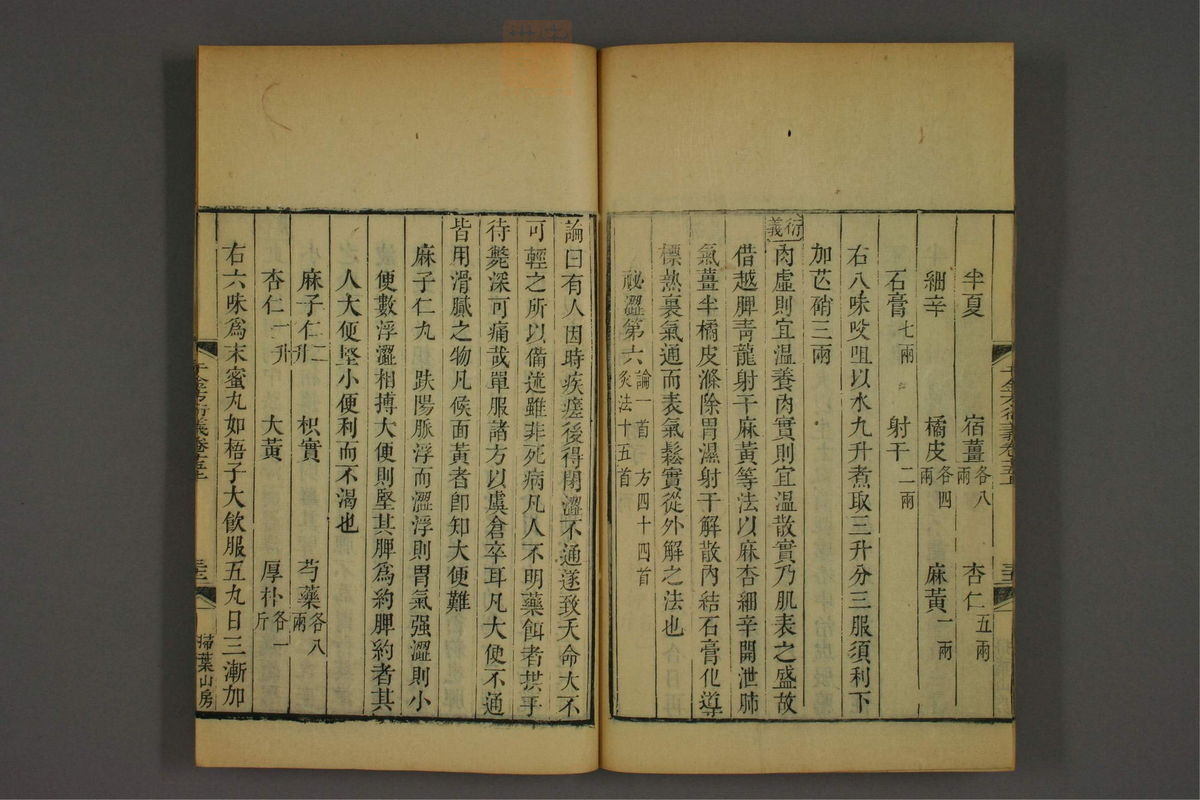 半夏 宿薑各八兩 杏仁五兩
細辛 橘皮各四兩 麻黃一兩
石膏七兩 射干二兩
右八味㕮咀以水九升煮取三升分三服須利下
加芒硝三兩
衍義肉虛則宜溫養肉實則宜溫散實乃肌表之盛故
借越脾靑龍射干麻黃等法以麻杏細辛開泄肺
氣薑半橘皮滌除胃濕射干解散內結石膏化導
標熱裏氣通而表氣鬆實從外解之法也
祕澀第六論一首 方四十四首 灸法十五首
論曰有人因時疾瘥後得閉澀不通遂致夭命大不
可輕之所以備述雖非死病凡人不明藥餌者拱手
待斃深可痛哉單服諸方以虞倉卒耳凡大便不通
皆用滑膩之物凡候面黃者卽知大便難
麻子仁丸 趺陽脈浮而澀浮則胃氣强澀則小
便數浮澀相搏大便則堅其脾爲約脾約者其
人大便堅小便利而不渴也
麻子仁二升 枳實 芍藥各八兩
杏仁一升 大黃 厚朴各一斤
右六味爲末蜜丸如梧子大飮服五丸日三漸加
千金方衍義卷十五
掃葉山房